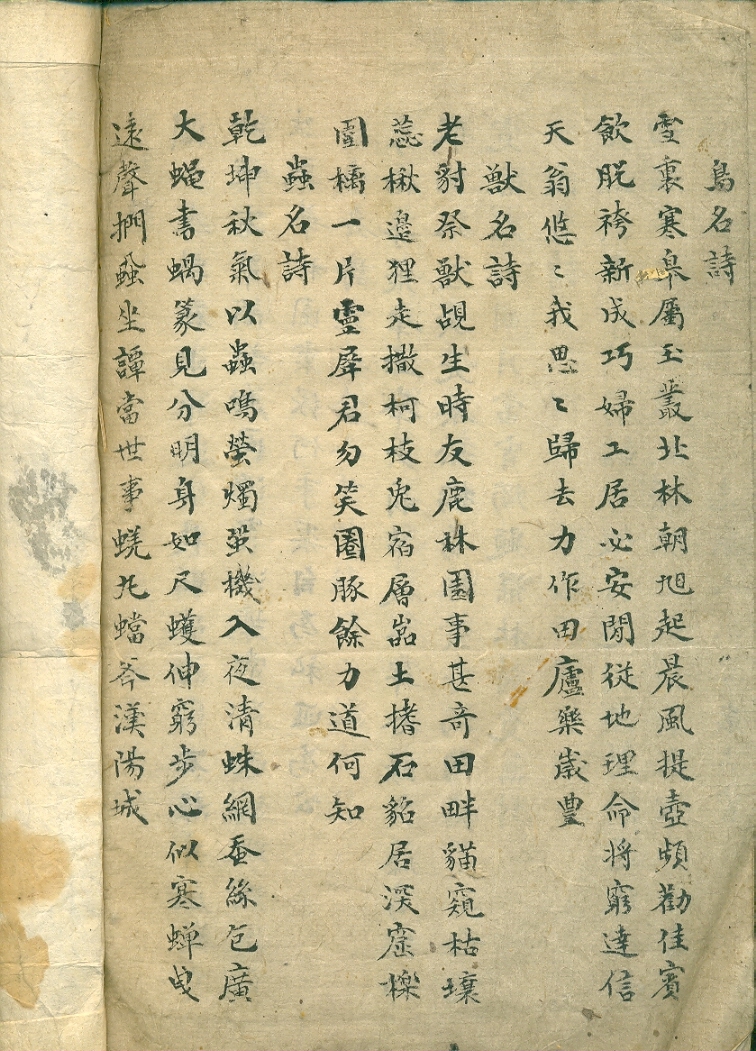 鳥名詩
雪裏寒皐屬玉叢北林朝旭起晨風提壺頻勸佳賓
飮脫袴新成巧婦工居必安閒從地理命將窮達信
天翁悠〻我思〻歸去力作田廬樂歲豊
獸名詩
老豺祭獸覘生時友鹿林園事甚奇田畔貓窺枯壤
蕊楸邊狸走撒柯枝兎宿層嵓土㨋石貂居深窟櫟
園檎一片靈犀君勿笑圈豚餘力道何知
蟲名詩
乾坤秋氣以蟲鳴螢燭蛩機入夜淸蛛網蚕絲包廣
大蠅書蝸篆見分明身如尺蠖伸窮步心似寒蟬曳
遠聲捫蝨坐譚當世事蜣丸蟷斧漢陽城